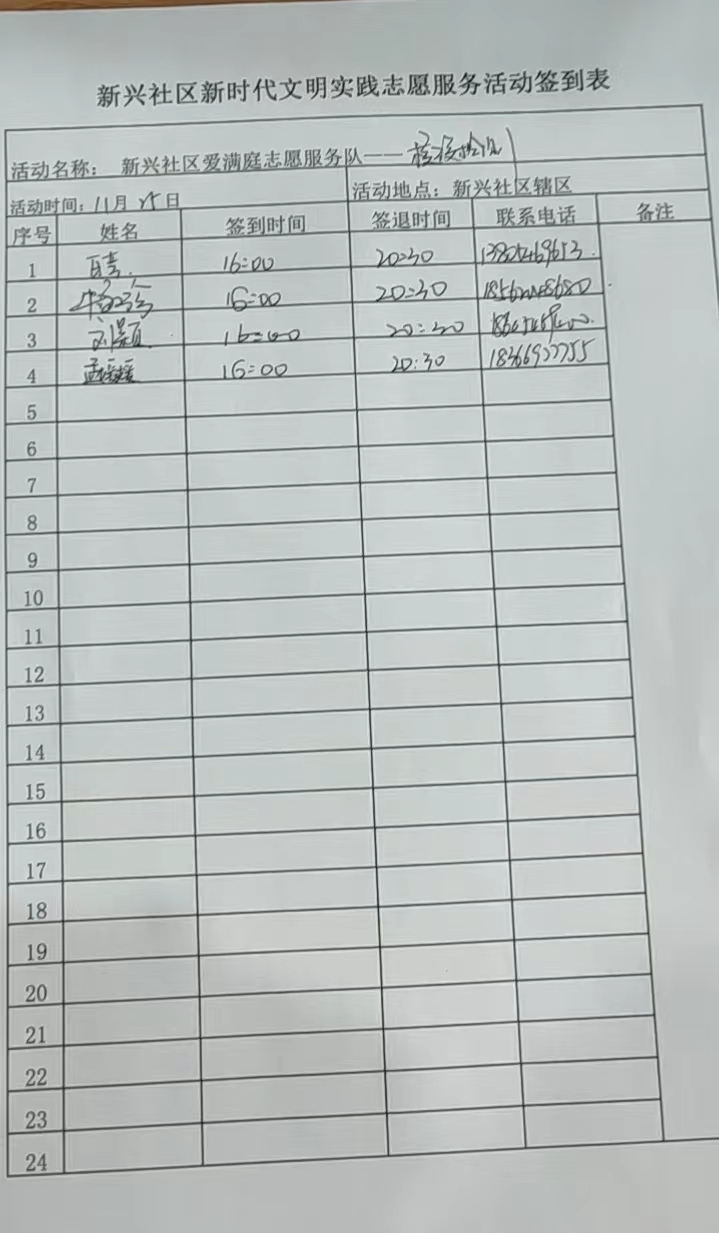 新兴社区新时代文明实践志愿服务活动签到表
活动名称： 新兴社区爱满庭志愿服务队——核酸检测
活动时间：11月25日 活动地点：新兴社区辖区
序号 姓名 签到时间 签退时间 联系电话 备注
1 16:00 20:30
2 16:00 20:30
3 刘显颖 16:00 20:30
4 孟媛媛 16:00 20:30 18366927755
5
6
7
8
9
10
11
12
13
14
15
16
17
18
19
20
21
22
23
24